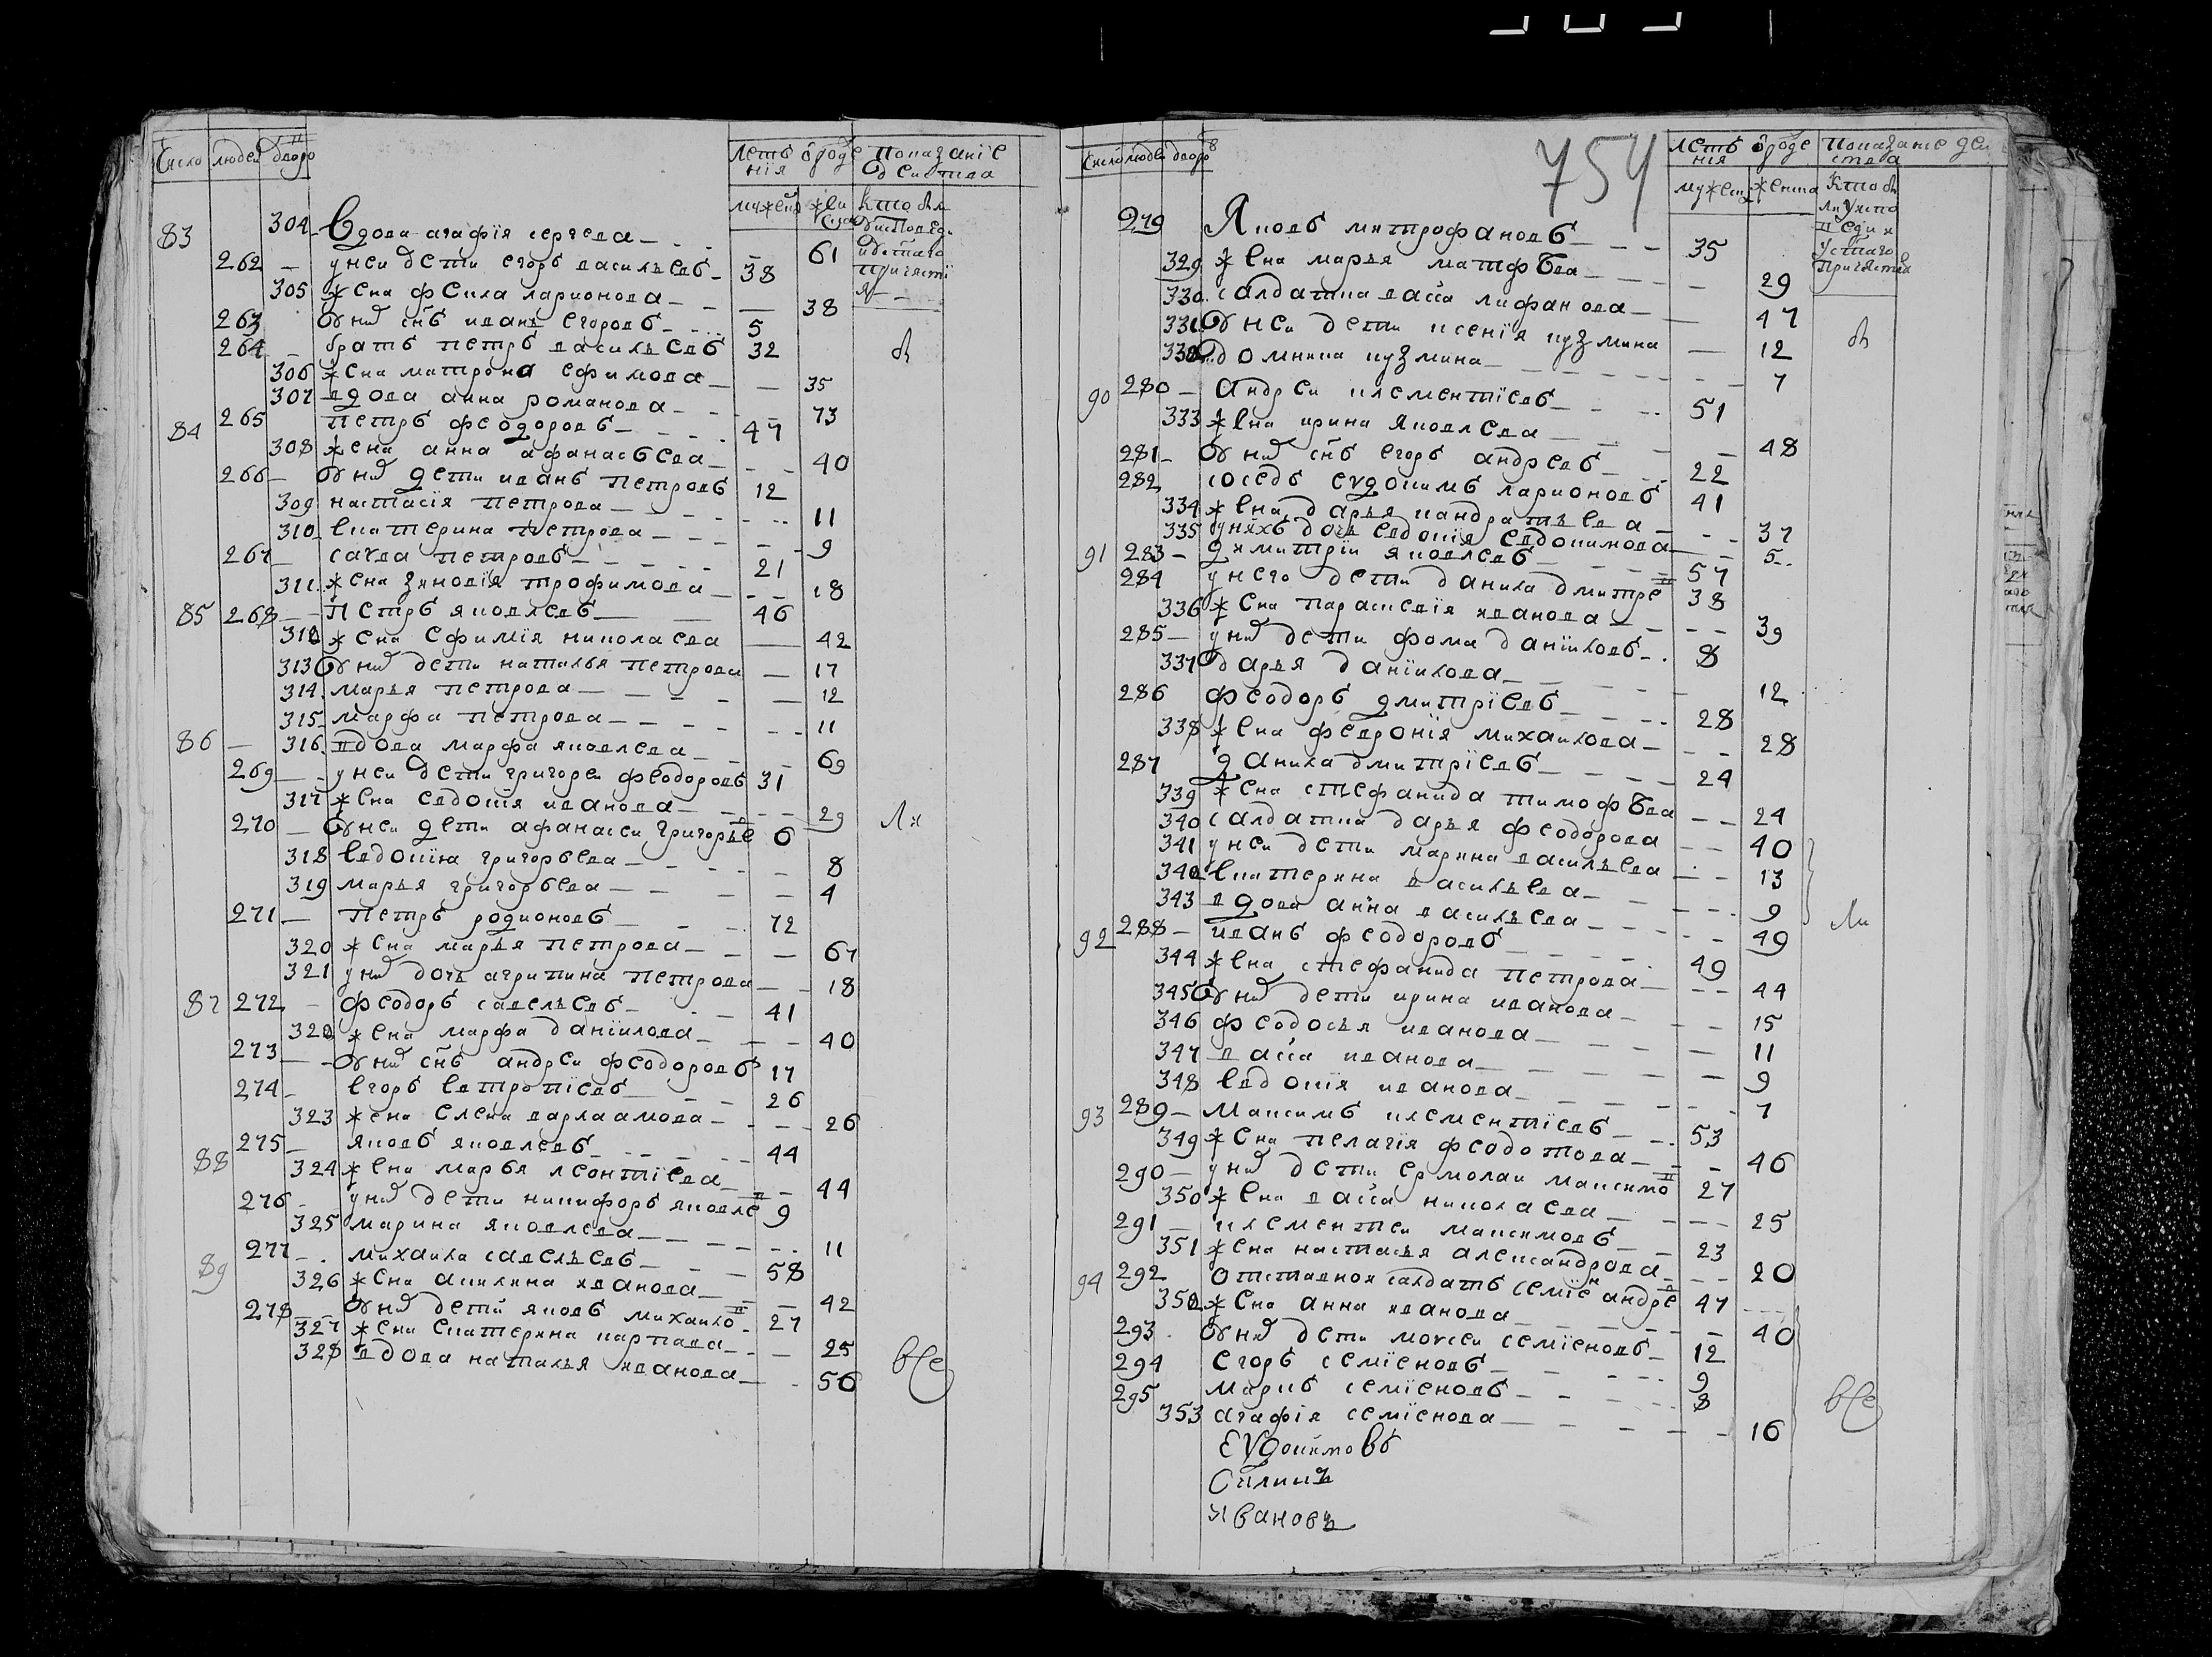 Число людей дворовъ
летъ ѿ рожде
нїя
Показанїе
мужеска женска
83 304 Вдова агафїя сергеева 61
262 у неи дети егоръ васильевъ 38
305 жена фекла ларионова 38
263 у них снъ иванъ егоровъ 5
264 братъ петръ васильевъ 32
306 жена матрона ефимова 35
307 вдова анна романова 73
84 265 петръ феодоровъ 47
308 жена анна афанасьева 40
266 у них дети иванъ петровъ 12
309 настасїя петрова 11
310 екатерина петрова 9
267 савва петровъ 21
311 жена зиновїя трофимова 18
85 268 петръ яковлевъ 46
312 жена ефимїя николаева 42
313 у них дети наталья петрова 17
314 марья петрова 12
315 марфа петрова 11
86 316 вдова марфа яковлева 69
269 у неи дети григореи феодоровъ 31
317 жена евдокїя иванова 29
270 у неи дети афанасеи григорье 6
318 евдокїя григорьева 8
319 марья григорьева 4
271 петръ родионовъ 72
320 жена марья петрова 67
321 у них дочь агрипина петрова 18
87 272 феодоръ савельевъ 41
322 жена марфа данїилова 40
273 у них снъ андреи феодоровъ 17
274 егоръ евтропїевъ 26
323 жена елена варлаамова 26
88 275 яковъ яковлевъ 44
324 жена марья леонтїева 44
276 у них дети никифоръ яковле 9
325 марина яковлева 11
89 277 михаила савельевъ 58
326 жена акилина иванова 42
278 у них дети яковъ михаило 27
327 жена екатерина карпова 25
328 вдова наталья иванова 56
754
Число людей дворовъ
летъ ѿ рожде
нїя
Показанїе дей
ства
мужеска женска
279 Яковъ митрофановъ 35
329 жена марья матфѣева 29
330 салдатка васса лифанова 47
331 у неи дети ксенїя кузмина 12
332 домника кузмина 7
90 280 андреи клементїевъ 51
333 жена ирина яковлева 48
281 у них снъ егоръ андреевъ 22
282 соседъ еvдокимъ ларионовъ 41
334 жена дарья кандратьева 37
335 у нихъ дочь евдокїя евдокимова 5
91 283 димитрїи яковлевъ 57
284 у него дети данила дмитре 38
336 жена парасковїя иванова 39
285 у них дети фома данїиловъ 8
337 дарья данїилова 12
286 феодоръ дмитрїевъ 28
338 жена феvронїя михаилова 28
287 данила дмитрїевъ 24
339 жена стефанида тимофѣева 24
340 салдатка дарья феодорова 40
341 у неи дети марина васильева 13
342 екатерина васильева 9
343 вдова анна васильева 49
92 288 иванъ феодоровъ 49
344 жена стефанида петрова 44
345 у них дети ирина иванова 15
346 феодосья иванова 11
347 васса иванова 9
348 евдокїя иванова 7
93 289 Максимъ клементїевъ 53
349 жена пелагїя феодотова 46
290 у них дети ермолаи максимо 27
350 жена васса николаева 25
291 клементеи максимовъ 23
351 жена настасья александрова 20
94 292 отставнои салдатъ семїенъ андре 47
352 жена анна иванова 40
293 у них дети моvсеи семїеновъ 12
294 егоръ семїеновъ 9
295 маркъ семїеновъ 8
353 агафїя семїенова 16
Еvдокимовъ
Силинъ
Ивановъ